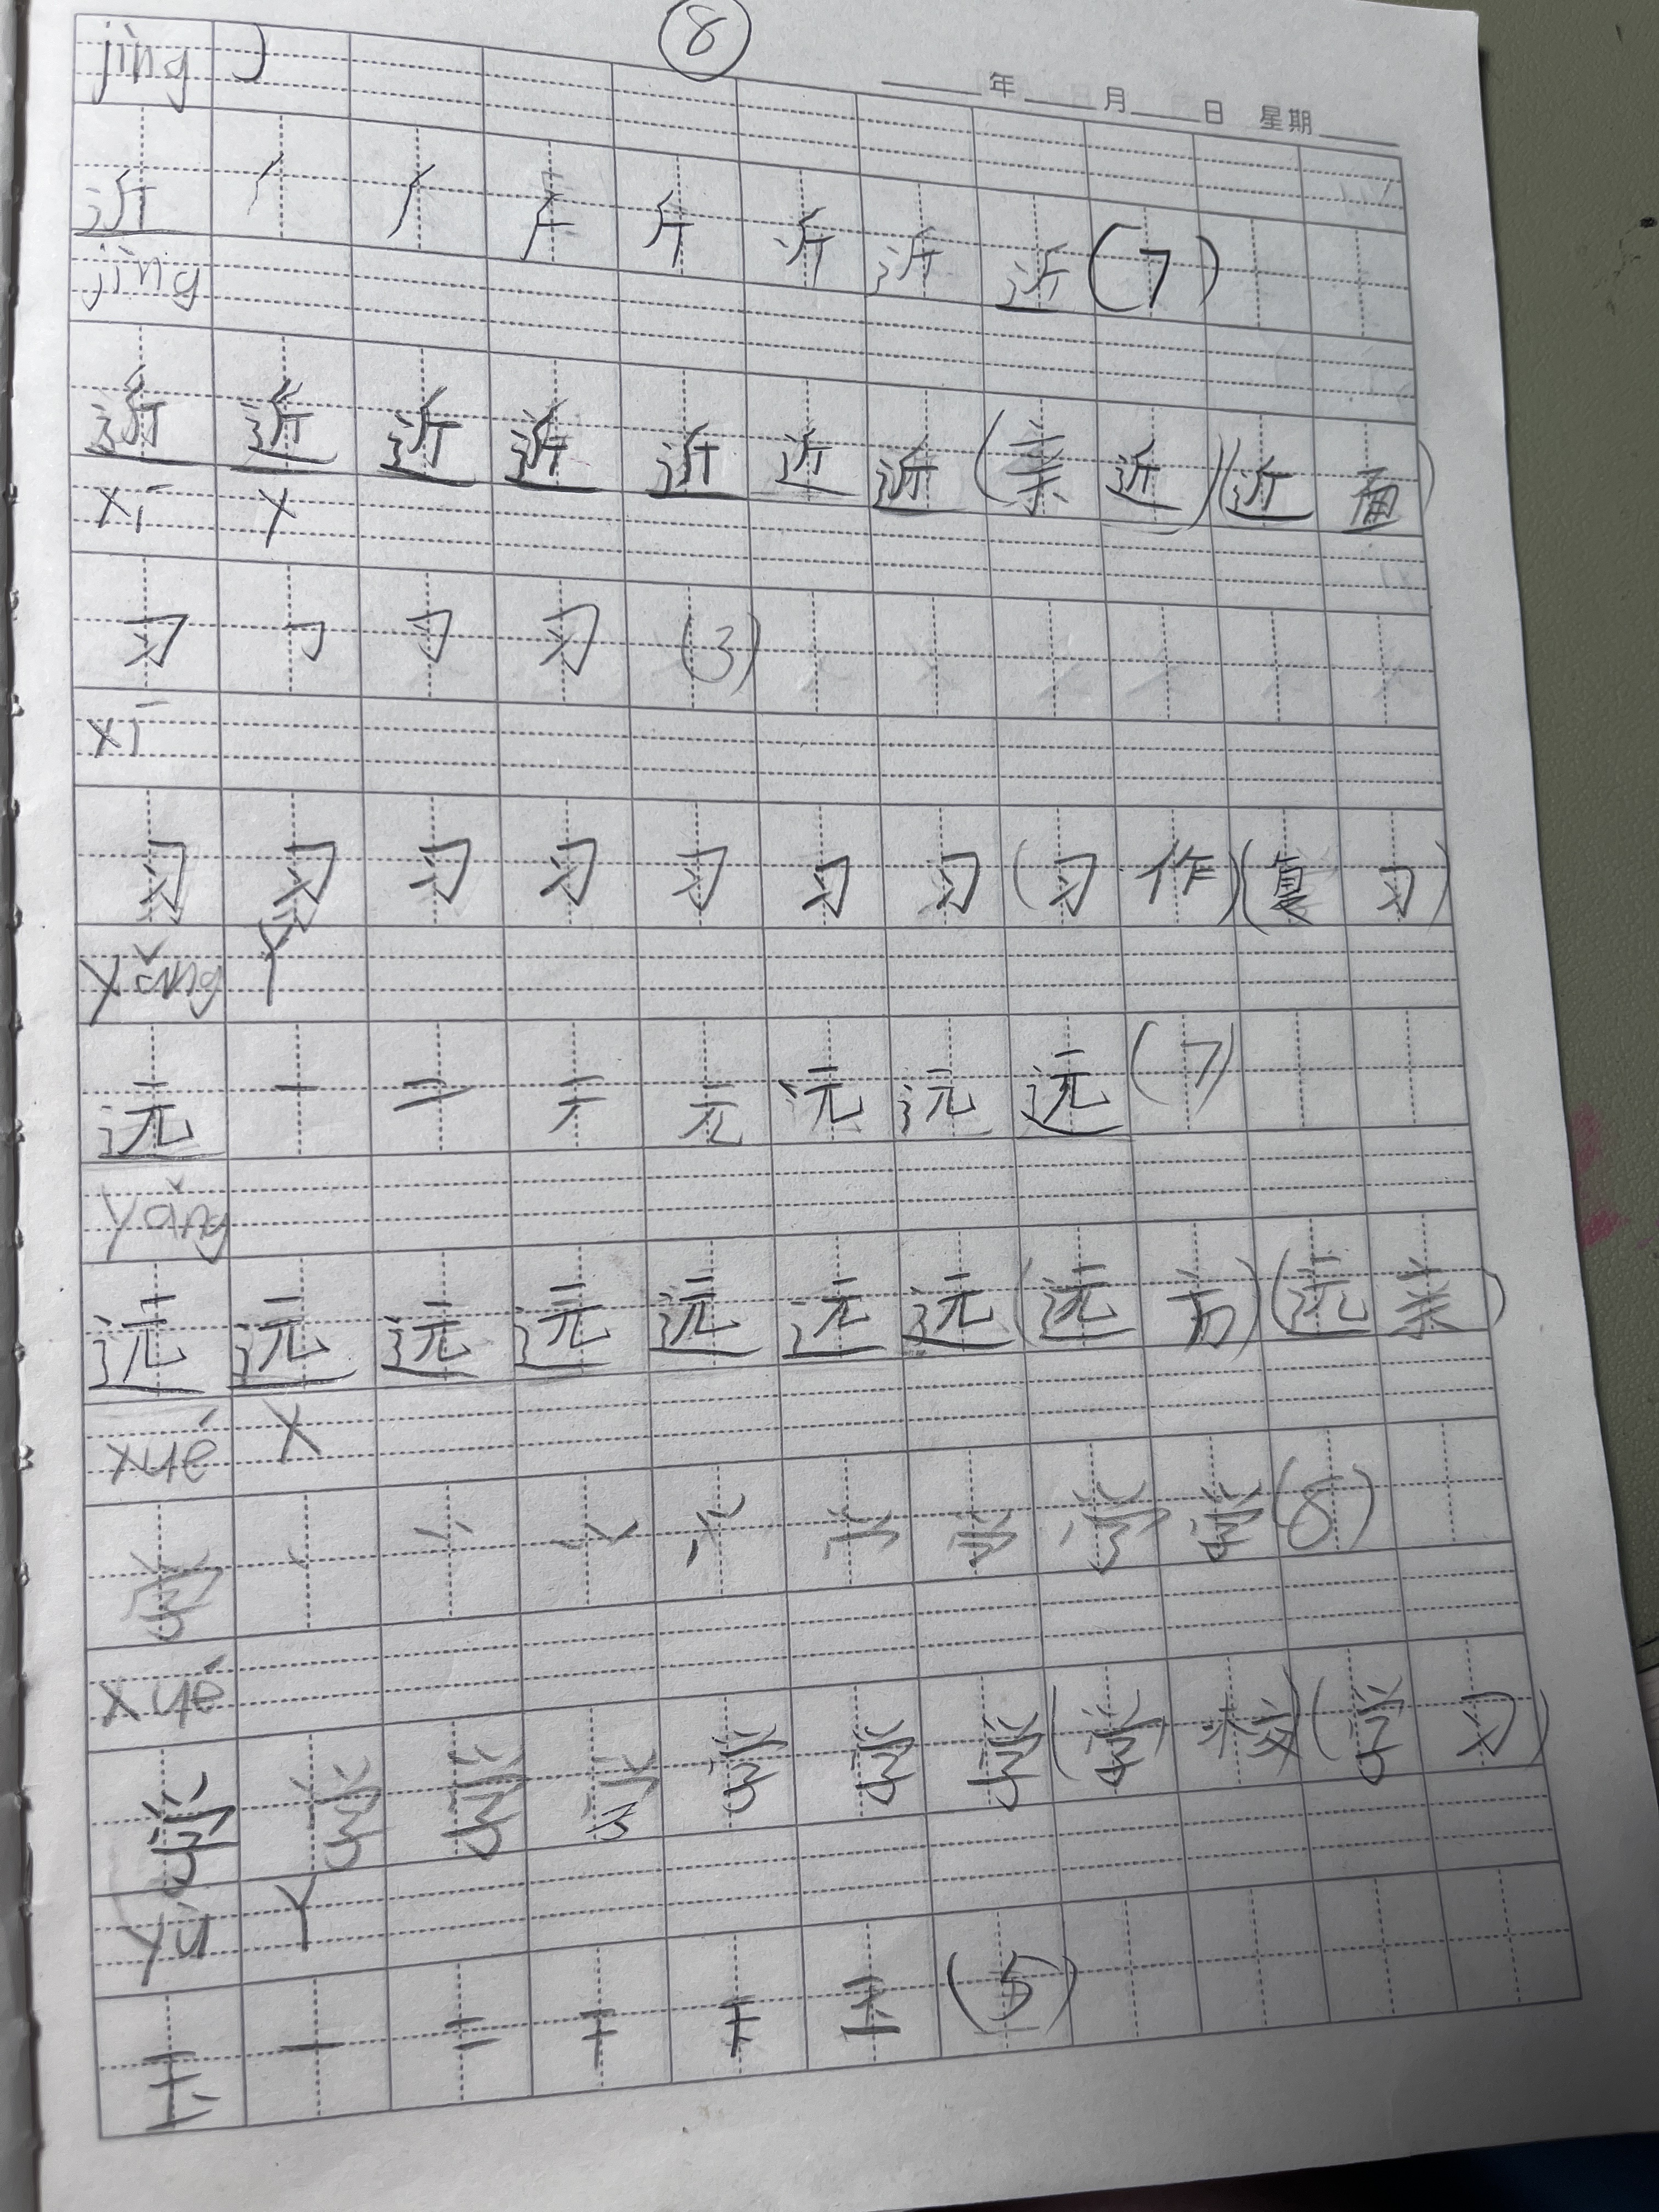 ⑧
年 月 日 星期
jìng J
近 斤 近 近 (7)
jìng
近 近 近 近 近 近 近 (亲 近) (近
xī X
习 ㇆ 习 (3)
xī
习 习 习 习 习 习 习 (习 作) (复 习)
yǎng Y
远 一 二 元 远 (7)
yǎng
远 远 远 远 远 远 远 (远 方) (远 亲)
xué X
学 丶 学 学 (8)
xué
学 学 学 学 学 学 (学 校) (学 习)
yù Y
玉 一 二 干 王 玉 (5)